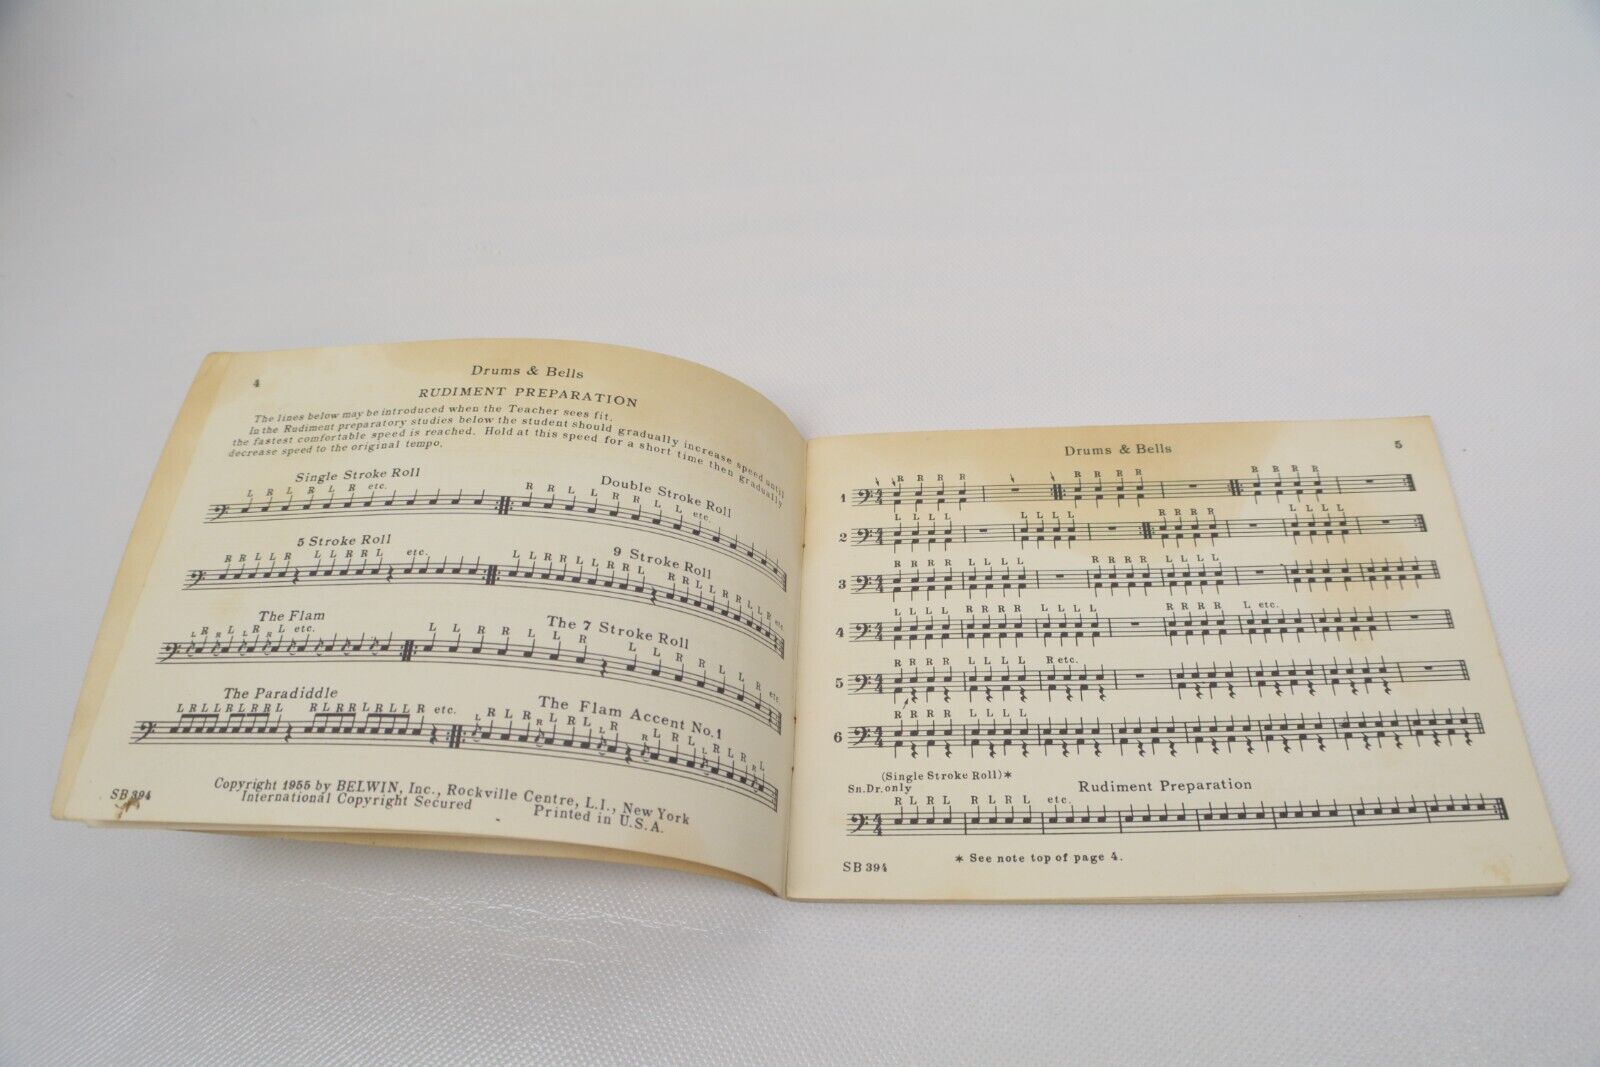 4
Drums & Bells
RUDIMENT PREPARATION
The lines below may be introduced when the Teacher sees fit.
In the Rudiment preparatory studies below the student should gradually increase speed until
the fastest comfortable speed is reached. Hold at this speed for a short time then gradually
decrease speed to the original tempo.
Single Stroke Roll
Double Stroke Roll
L R L R L R etc.
R R L L R R L L etc.
5 Stroke Roll
9 Stroke Roll
R R L L R L L R R L etc.
L L R R L L R R L R R L L R R L L R etc.
The Flam
The 7 Stroke Roll
L R R L L R R L etc.
L L R R L L R L L R R L L R etc.
The Paradiddle
The Flam Accent No. 1
L R L L R L R R L R L R R L R L L R etc.
L R L R R L R L L R R L R L L R L R R L
Copyright 1955 by BELWIN, Inc., Rockville Centre, L.I., New York
International Copyright Secured
Printed in U.S.A.
SB 394
Drums & Bells
5
R R R R R R R R R R R R
1
L L L L L L L L L L L L L L L L
2
R R R R L L L L R R R R L L L L
3
L L L L R R R R L L L L R R R R L etc.
4
R R R R L L L L R etc.
5
R R R R L L L L
6
(Single Stroke Roll)*
Sn.Dr. only
Rudiment Preparation
R L R L R L R L etc.
* See note top of page 4.
SB 394